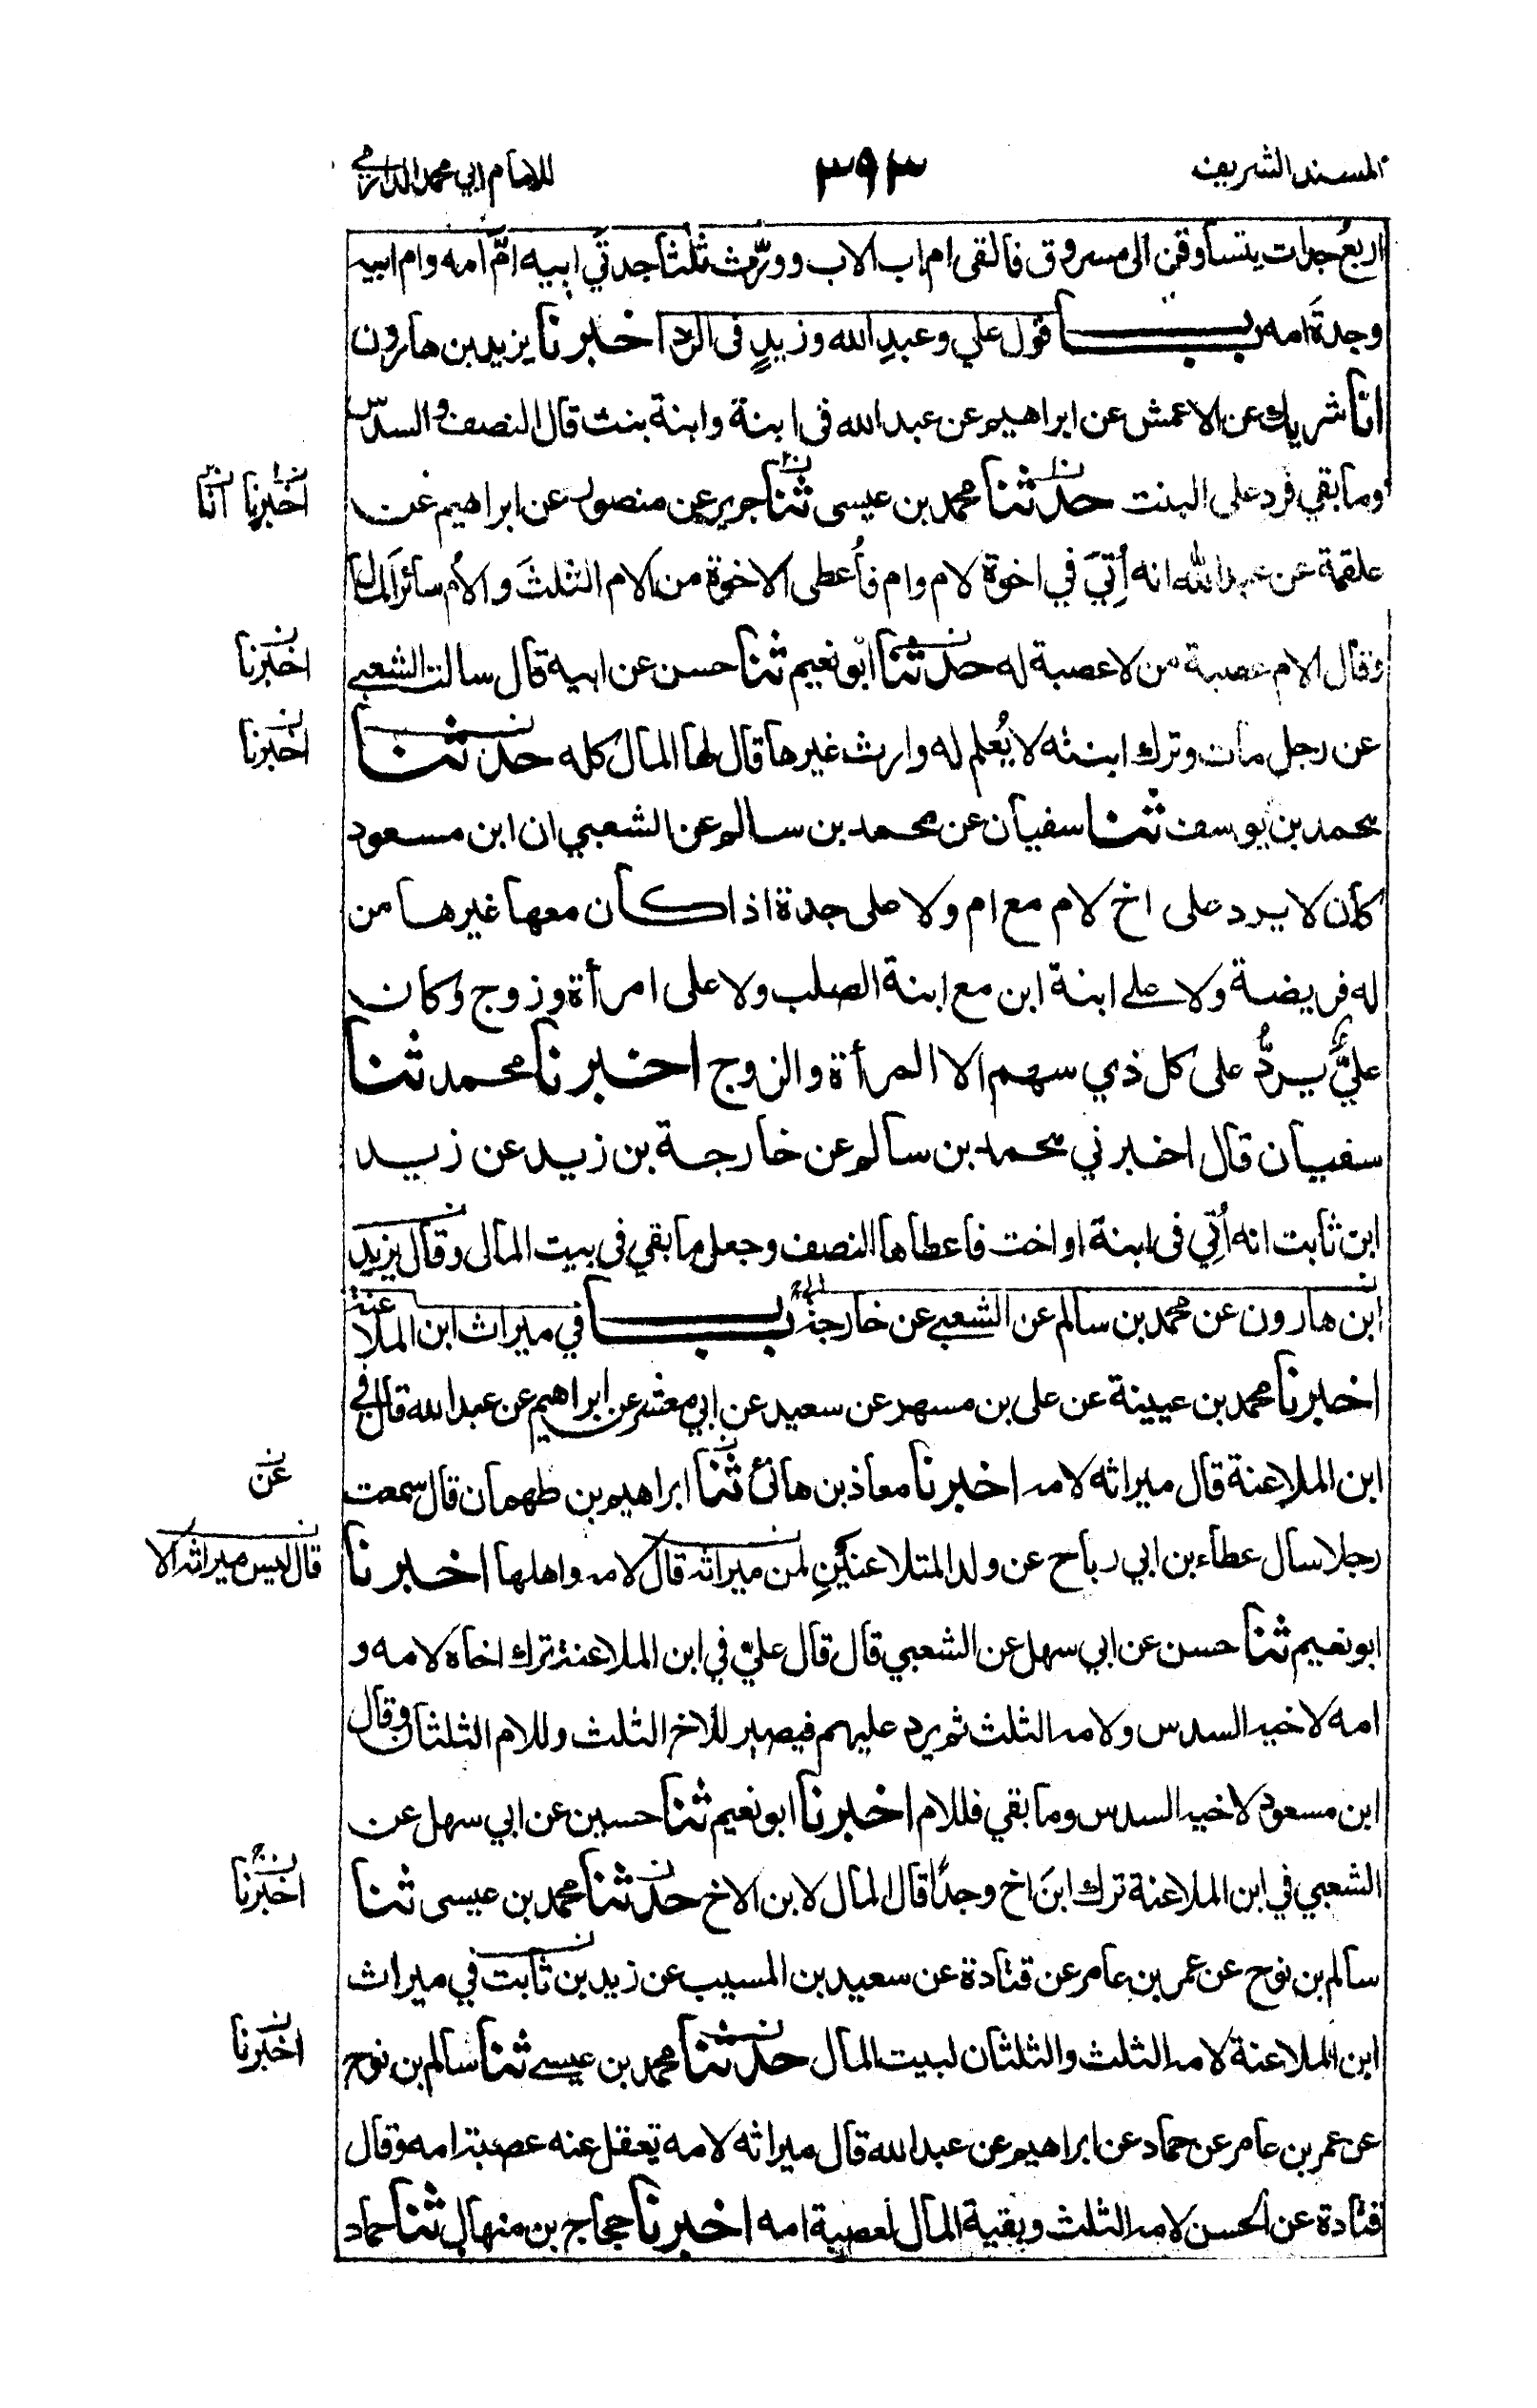 المسند الشريف ٣٩٣ للامام ابي محمد الدارمي
اربعُ جدات يتساوقن الى مسروق فالقى ام اب الاب وورّث ثلثا جدتَي ابيه امَّ امه وام ابيه
وجدةَ امه باب قول علي وعبدِ الله وزيدٍ فى الرد اخبرنا يزيد بن هارون
انا شريك عن الاعمش عن ابراهيم عن عبد الله فى ابنة وابنة بنت قال النصف والسدس
وما بقي فرد على البنت حدثنا محمد بن عيسى ثنا جرير عن منصور عن ابراهيم عن
اخبرنا انا
علقمة عن عبد الله انه أُتِيَ في اخوة لام وام فأعطى الاخوة من الام الثلثَ والأم سائرَ المال
وقال الام عصبة من لا عصبة له حدثنا ابو نعيم ثنا حسن عن ابيه قال سالت الشعبي
اخبرنا
عن رجل مات وترك ابنته لا يُعلم له وارث غيرها قال لها المال كله حدثنا
اخبرنا
محمد بن يوسف ثنا سفيان عن محمد بن سالم عن الشعبي ان ابن مسعود
كان لا يرد على اخ لام مع ام ولا على جدة اذا كان معها غيرها من
له فريضة ولا على ابنة ابن مع ابنة الصلب ولا على امرأة وزوج وكان
عليٌّ يردُّ على كل ذي سهم الا المرأة والزوج اخبرنا محمد ثنا
سفيان قال اخبرني محمد بن سالم عن خارجة بن زيد عن زيد
ابن ثابت انه أُتِي فى ابنة او اخت فاعطاها النصف وجعل ما بقي فى بيت المال وقال يزيد
ابن هارون عن محمد بن سالم عن الشعبي عن خارجة باب في ميراث ابن الملاعنة
اخبرنا محمد بن عيينة عن على بن مسهر عن سعيد عن ابي معشر عن ابراهيم عن عبد الله قال في
ابن الملاعنة قال ميراثه لامه اخبرنا معاذ بن هانئ ثنا ابراهيم بن طهمان قال سمعت
عن
رجلا سال عطاء بن ابي رباح عن ولد المتلاعنَينِ لمن ميراثه قال لامه واهلها اخبرنا
قال ليس ميراثه الا
ابو نعيم ثنا حسن عن ابي سهل عن الشعبي قال قال علي في ابن الملاعنة ترك اخاه لامه و
امه لاخيه السدس ولامه الثلث ثم يرد عليهم فيصير للاخ الثلث وللام الثلثان وقال
ابن مسعود لاخيه السدس وما بقي فللام اخبرنا ابو نعيم ثنا حسين عن ابي سهل عن
الشعبي في ابن الملاعنة ترك ابنَ اخ وجدًا قال المال لابن الاخ حدثنا محمد بن عيسى ثنا
اخبرنا
سالم بن نوح عن عمر بن عامر عن قتادة عن سعيد بن المسيب عن زيد بن ثابت في ميراث
ابن الملاعنة لامه الثلث والثلثان لبيت المال حدثنا محمد بن عيسى ثنا سالم بن نوح
اخبرنا
عن عمر بن عامر عن حماد عن ابراهيم عن عبد الله قال ميراثه لامه تعقل عنه عصبة امه وقال
قتادة عن الحسن لامه الثلث وبقية المال لعصبة امه اخبرنا حجاج بن منهال ثنا حماد